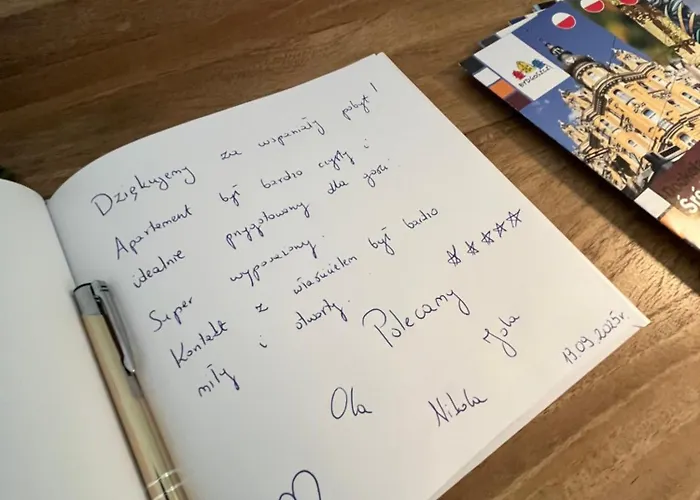 Dziękujemy za wspaniały pobyt!
Apartament był bardzo czysty i
idealnie przygotowany dla gości.
Super wyposażony.
Kontakt z właścicielem był bardzo
miły i otwarty.
Polecamy
Ola
Nikola
Jola
13.09.2025r.
BYDGOSZCZ